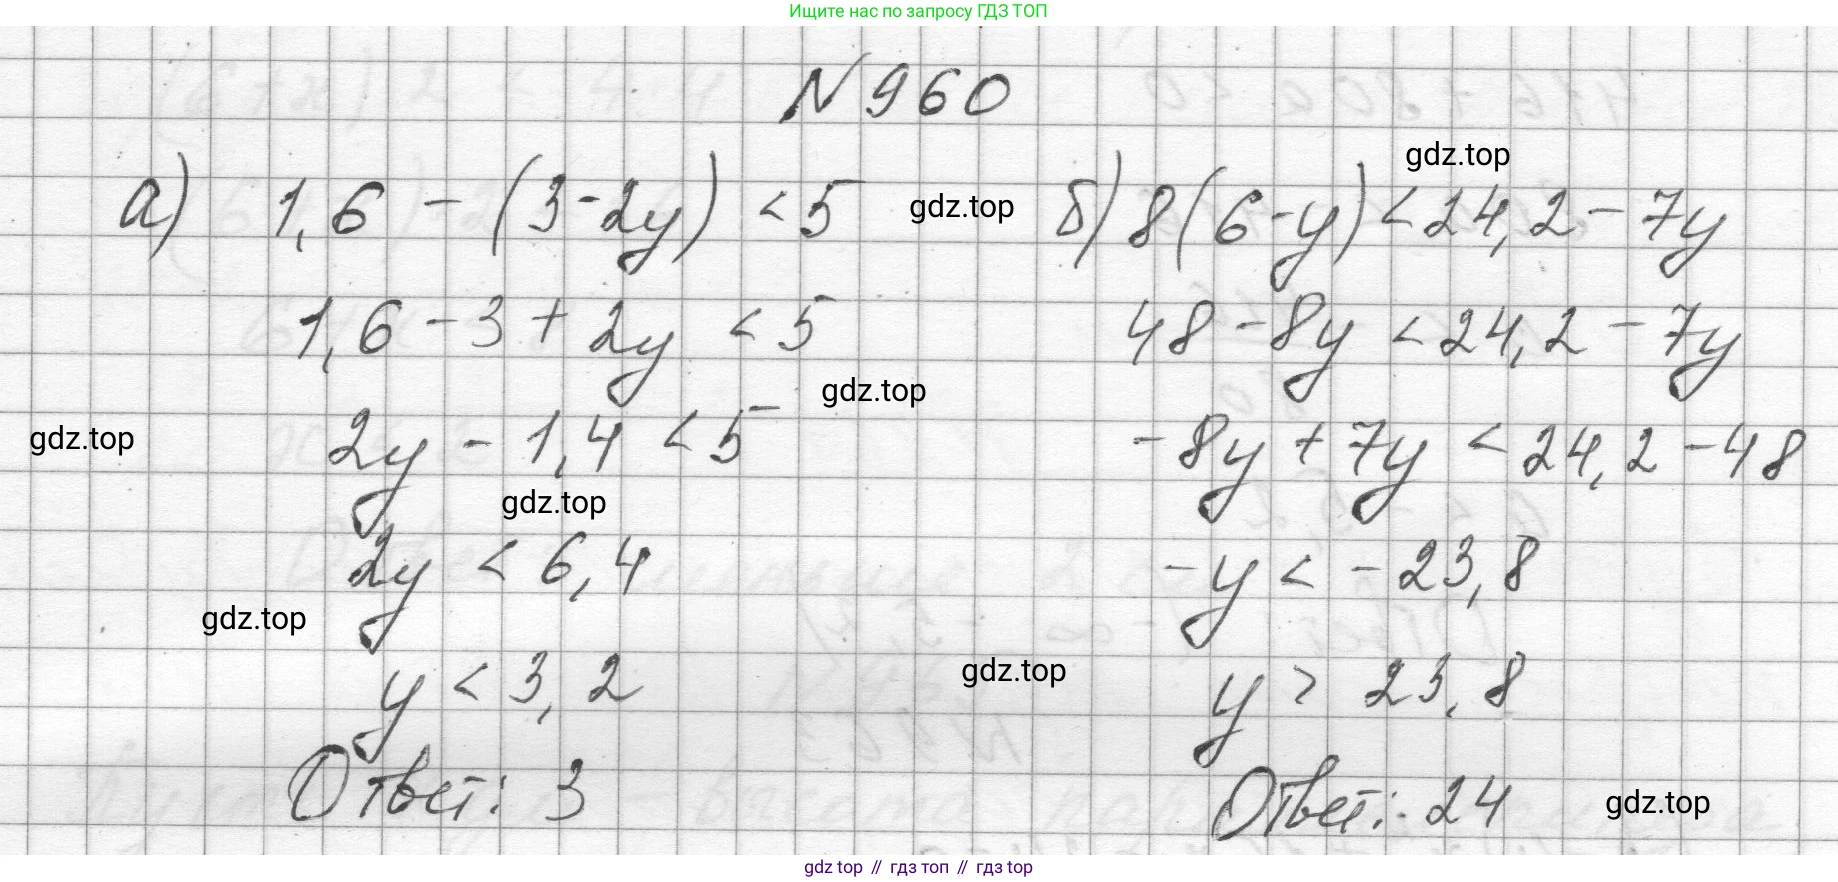 Ищите нас по запросу ГДЗ ТОП
N 960
а) 1,6 - (3-2y) < 5
1,6 - 3 + 2y < 5
2y - 1,4 < 5
2y < 6,4
y < 3,2
Ответ: 3
б) 8(6-y) < 24,2 - 7y
48 - 8y < 24,2 - 7y
-8y + 7y < 24,2 - 48
-y < -23,8
y > 23,8
Ответ: 24
gdz.top
gdz.top
gdz.top
gdz.top
gdz.top
gdz.top
gdz.top
gdz.top
gdz top // гдз топ // гдз top